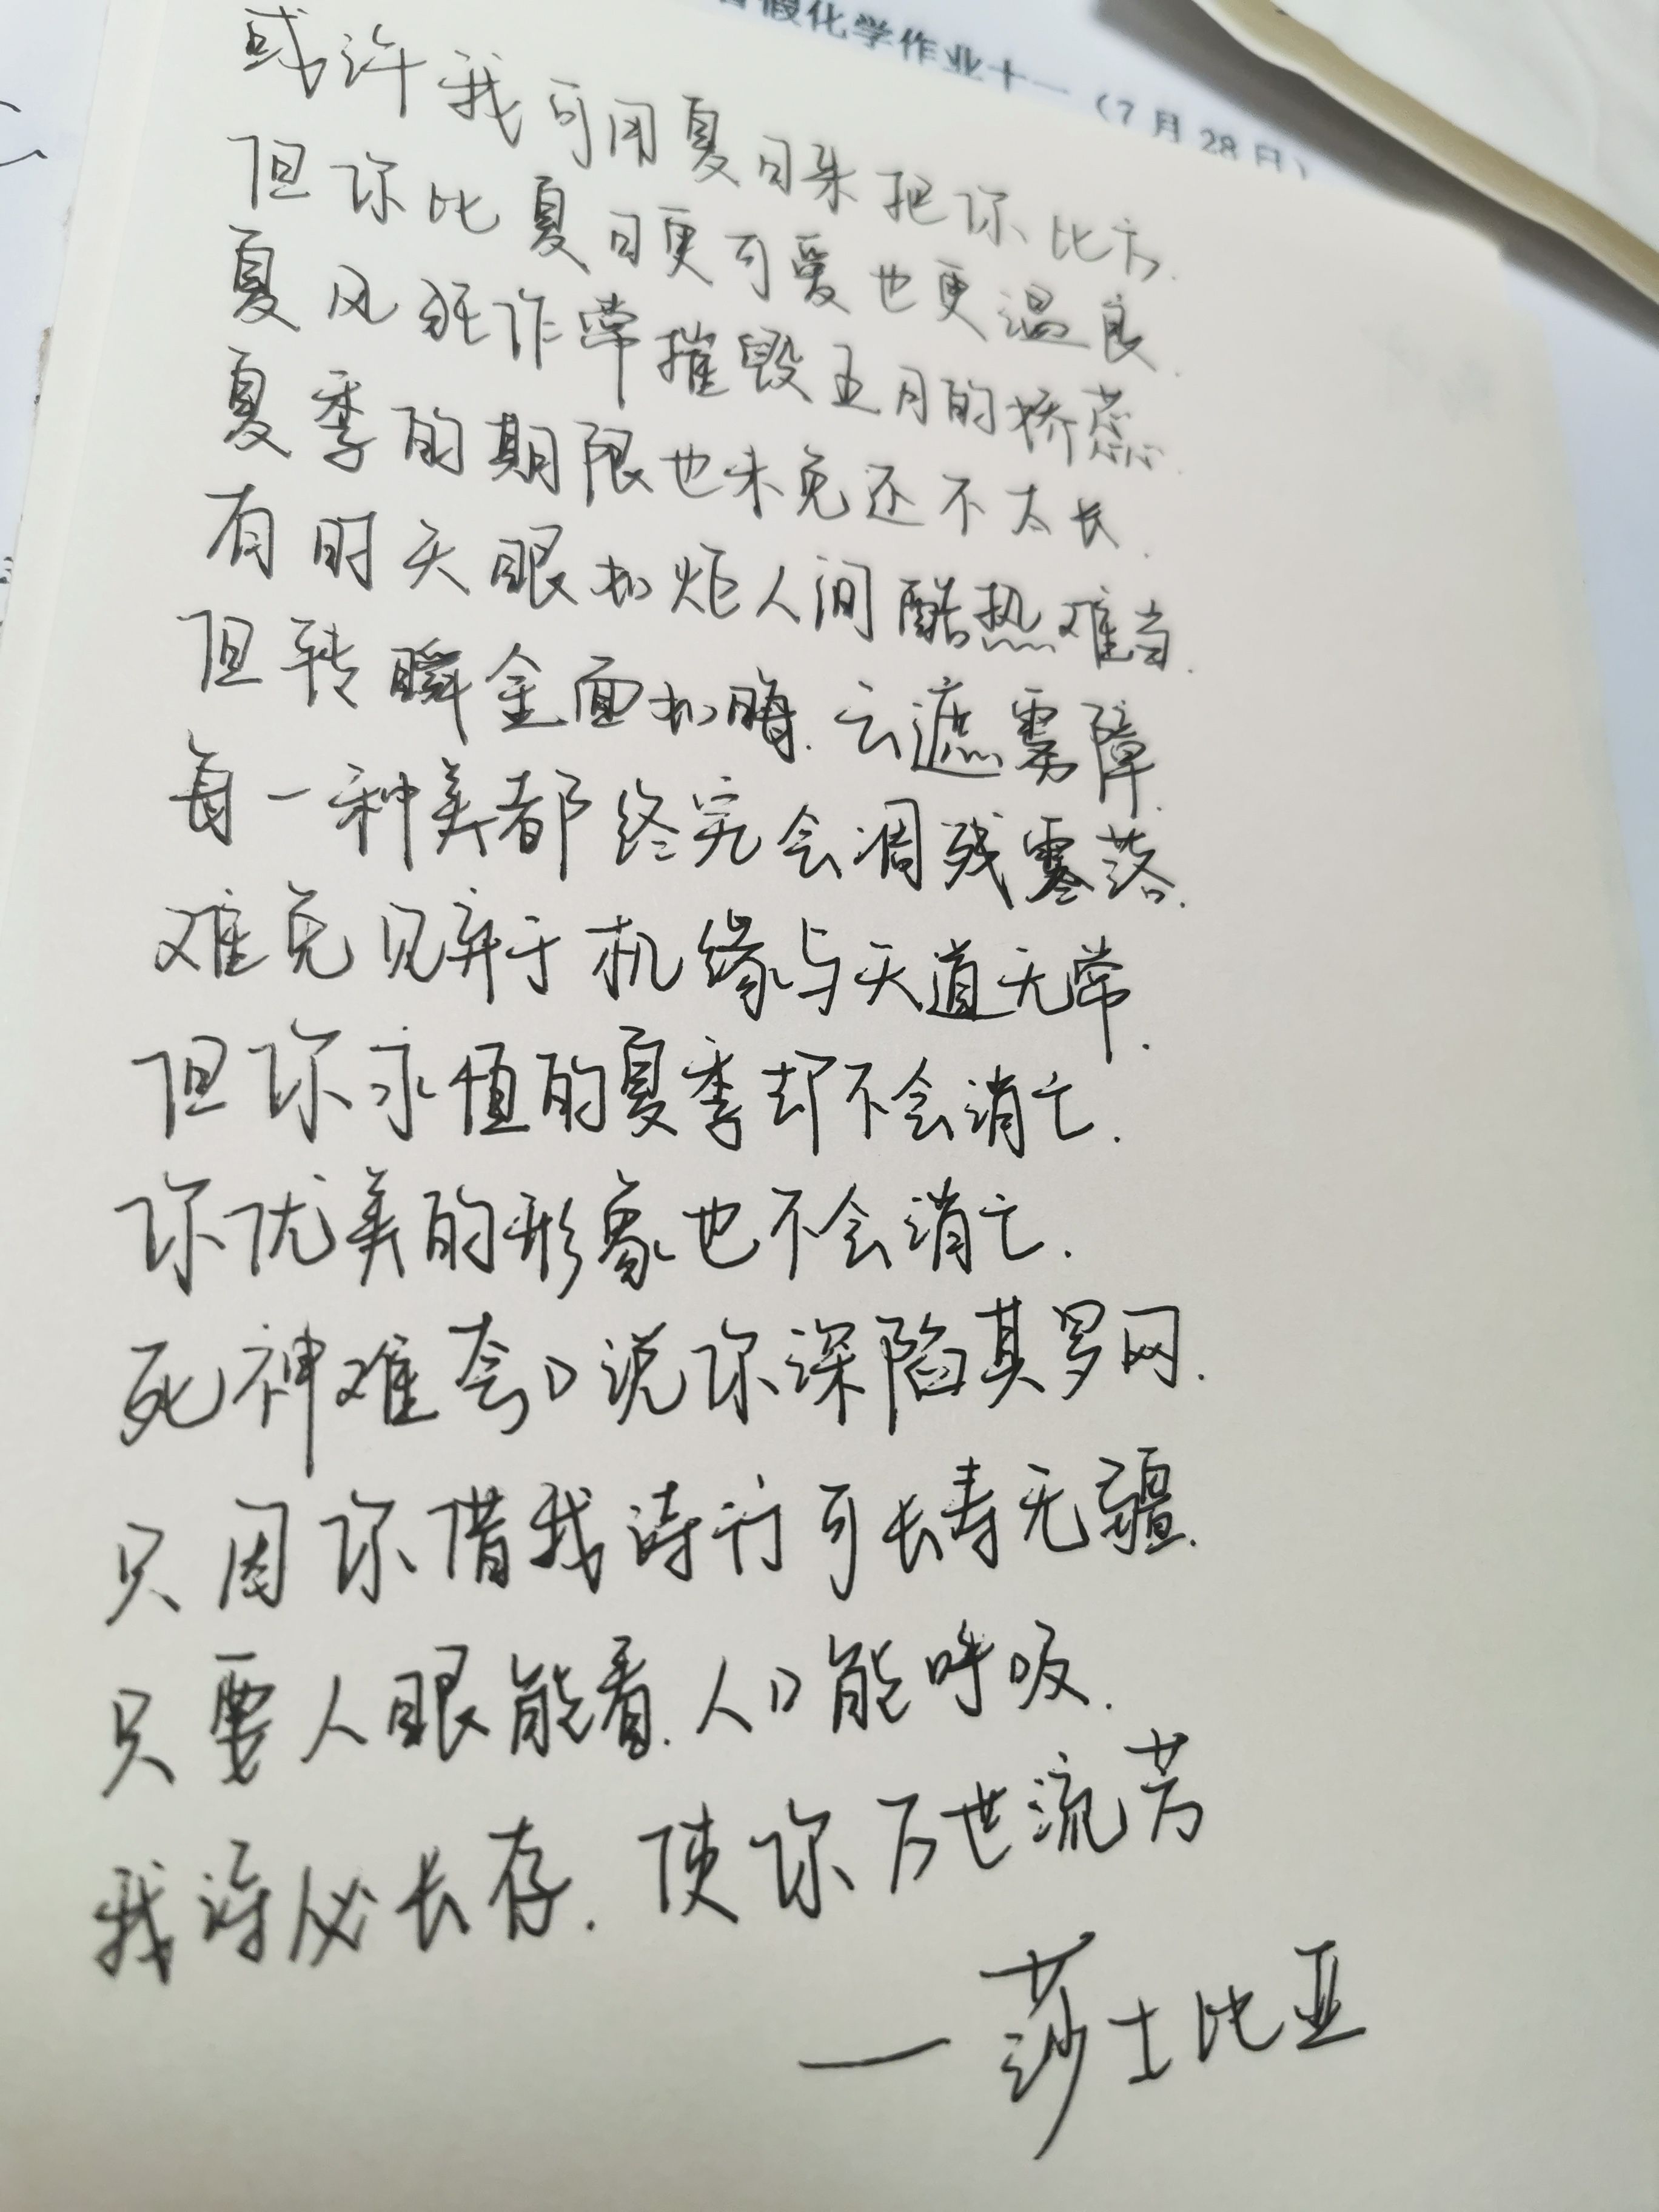 暑假化学作业十一（7月28日）
或许我可用夏日来把你比方.
但你比夏日更可爱也更温良.
夏风狂作常摧毁五月的娇蕊.
夏季的期限也未免还不太长.
有时天眼如炬人间酷热难当.
但转瞬金面如晦.云遮雾障.
每一种美都终究会凋残零落.
难免见弃于机缘与天道无常.
但你永恒的夏季却不会消亡.
你优美的形象也不会消亡.
死神难夸口说你深陷其罗网.
只因你借我诗行可长寿无疆.
只要人眼能看.人口能呼吸.
我诗必长存.使你万世流芳
——莎士比亚